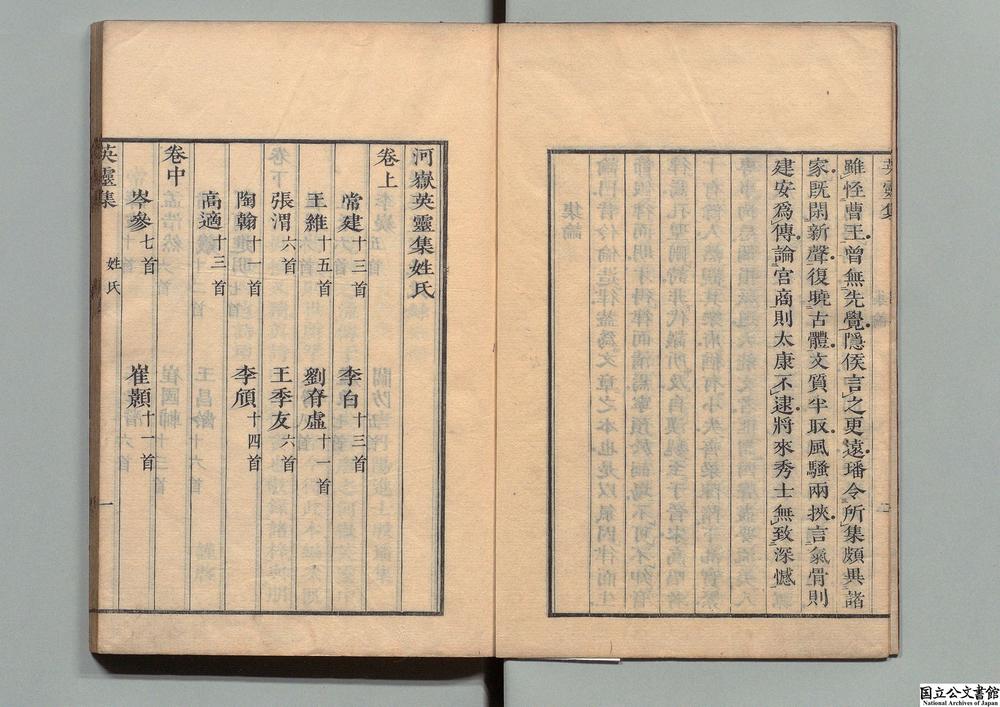 雖恠曹王曾無先覺隱侯言之更遠璠令所集頗異諸
家既閑新聲復曉古體文質半取風騷兩挾言氣骨則
建安爲傳論宮商則太康不逮將來秀士無致深憾
河嶽英靈集姓氏
卷上
常建十三首 李白十三首
王維十五首 劉脊虛十一首
張渭六首 王季友六首
陶翰十一首 李頎十四首
高適十三首
卷中
岑參七首 崔顥十一首
英靈集 姓氏 一
国立公文書館
National Archives of Japan